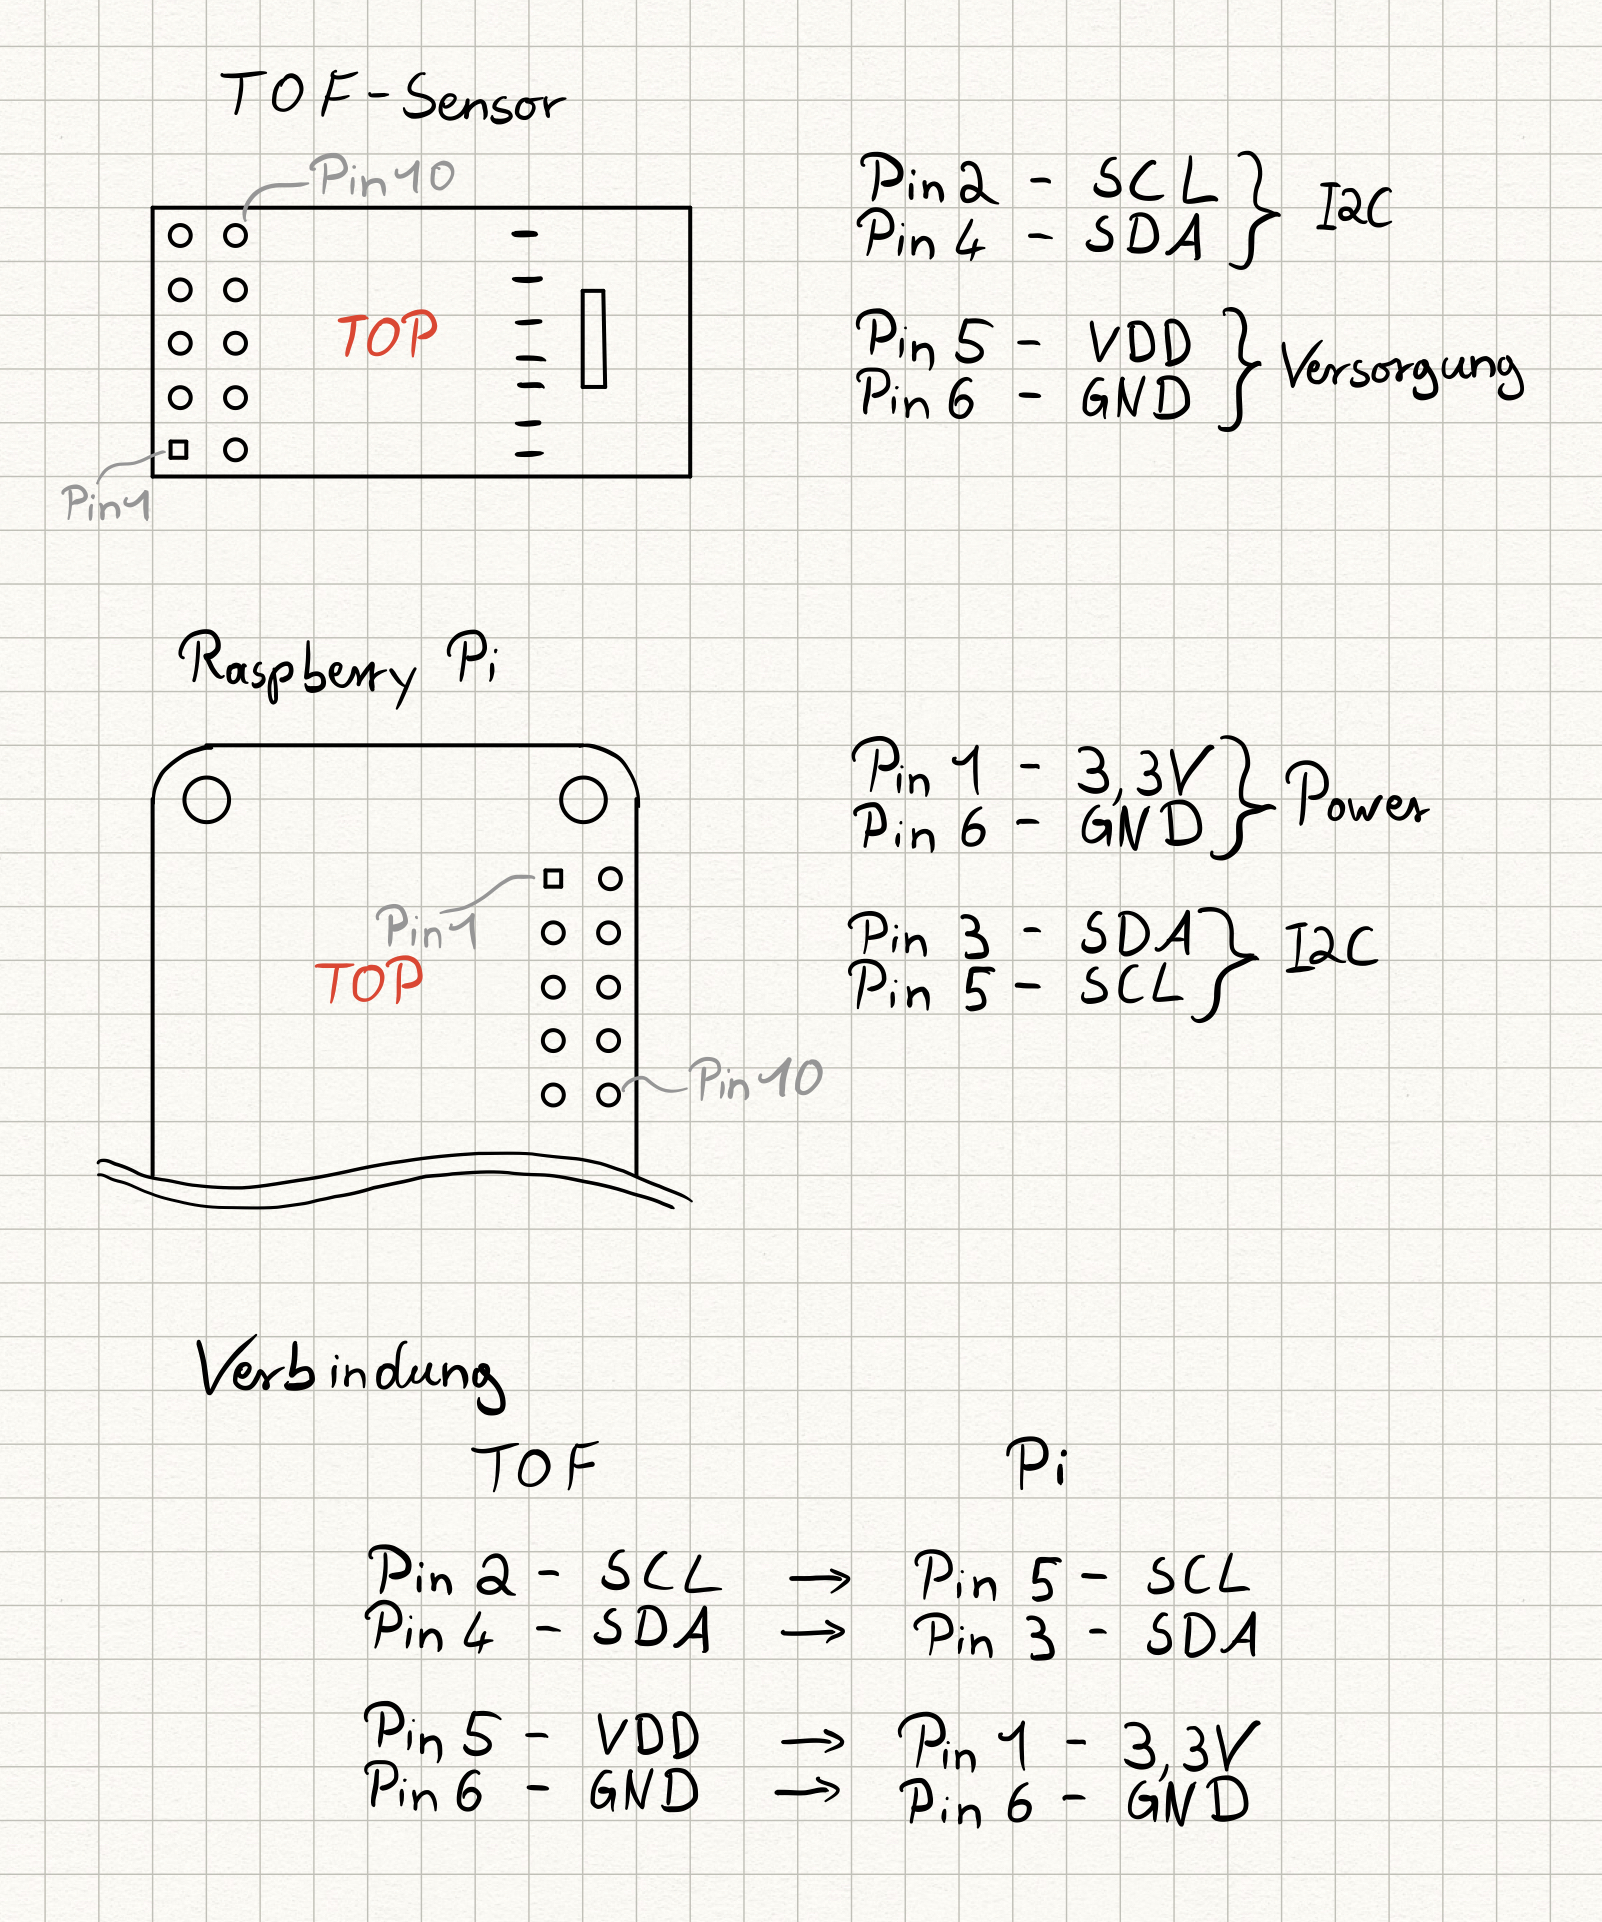 TOF-Sensor
Pin 10
TOP
Pin 1
Pin 2 - SCL
Pin 4 - SDA
I2C
Pin 5 - VDD
Pin 6 - GND
Versorgung
Raspberry Pi
Pin 1
TOP
Pin 10
Pin 1 - 3,3V
Pin 6 - GND
Power
Pin 3 - SDA
Pin 5 - SCL
I2C
Verbindung
TOF Pi
Pin 2 - SCL → Pin 5 - SCL
Pin 4 - SDA → Pin 3 - SDA
Pin 5 - VDD → Pin 1 - 3,3V
Pin 6 - GND → Pin 6 - GND